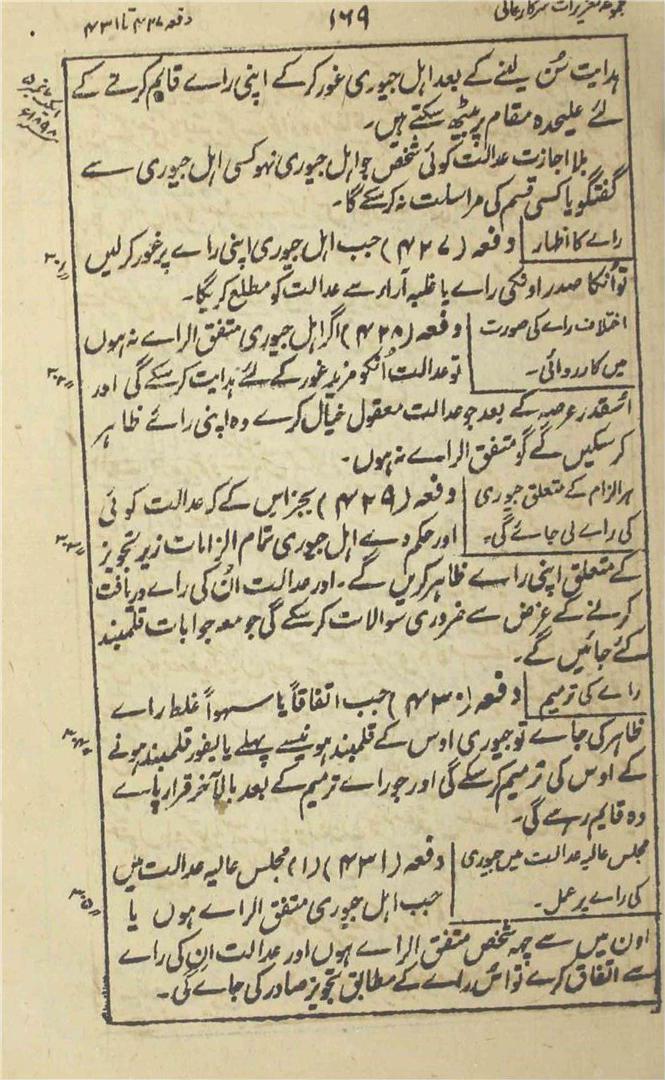 دفعہ ۴۲۷ تا ۴۳۱
۱۶۹
مجموعہ تعزیرات سرکار عالی
ایکٹ نمبر ۵
۱۸۹۸ء
ہدایت سُن لینے کے بعد اہل جیوری غور کر کے اپنی راے قایم کرنے کے
لئے علیحدہ مقام پر بیٹھ سکتے ہیں۔
بلا اجازت عدالت کوئی شخص جو اہل جیوری نہو کسی اہل جیوری سے
گفتگو یا کسی قسم کی مراسلت نہ کر سکے گا۔
راے کا اظہار
دفعہ (۴۲۷) جب اہل جیوری اپنی راے پر غور کر لیں
۳۰۱
تو اُنکا صدر اونکی راے یا غلبہ آراء سے عدالت کو مطلع کریگا۔
اختلاف راے کی صورت
میں کارروائی۔
دفعہ (۴۲۸) اگر اہل جیوری متفق الراے نہ ہوں
۳۰۲
تو عدالت اُنکو مزید غور کے لئے ہدایت کر سکے گی اور
اسقدر عرصہ کے بعد جو عدالت معقول خیال کرے وہ اپنی رائے ظاہر
کر سکیں گے گو متفق الراے نہ ہوں۔
ہر الزام کے متعلق جیوری
کی راے لی جائے گی۔
دفعہ (۴۲۹) بجز ایس کے کہ عدالت کوئی
۳۰۳
اور حکم دے اہل جیوری تمام الزامات زیر تجویز
کے متعلق اپنی راے ظاہر کریں گے۔ اور عدالت اُن کی راے دریافت
کرنے کے غرض سے ضروری سوالات کر سکے گی جو معہ جوابات قلمبند
کئے جائیں گے۔
راے کی ترمیم
دفعہ (۴۳۰) جب اتفاقاً یا سہواً غلط راے
۳۰۴
ظاہر کی جاے تو جیوری اوس کے قلمبند ہونیسے پہلے یا بفور قلمبند ہونے
کے اوس کی ترمیم کر سکے گی اور جو راے ترمیم کے بعد بالآخر قرار پاے
وہ قایم رہے گی۔
مجلس عالیہ عدالت میں جیوری
کی راے پر عمل۔
دفعہ (۴۳۱) (۱) مجلس عالیہ عدالت میں
۳۰۵
جب اہل جیوری متفق الراے ہوں یا
اون میں سے چھہ شخص متفق الراے ہوں اور عدالت ان کی راے
سے اتفاق کرے تو اس راے کے مطابق تجویز صادر کی جاے گی۔